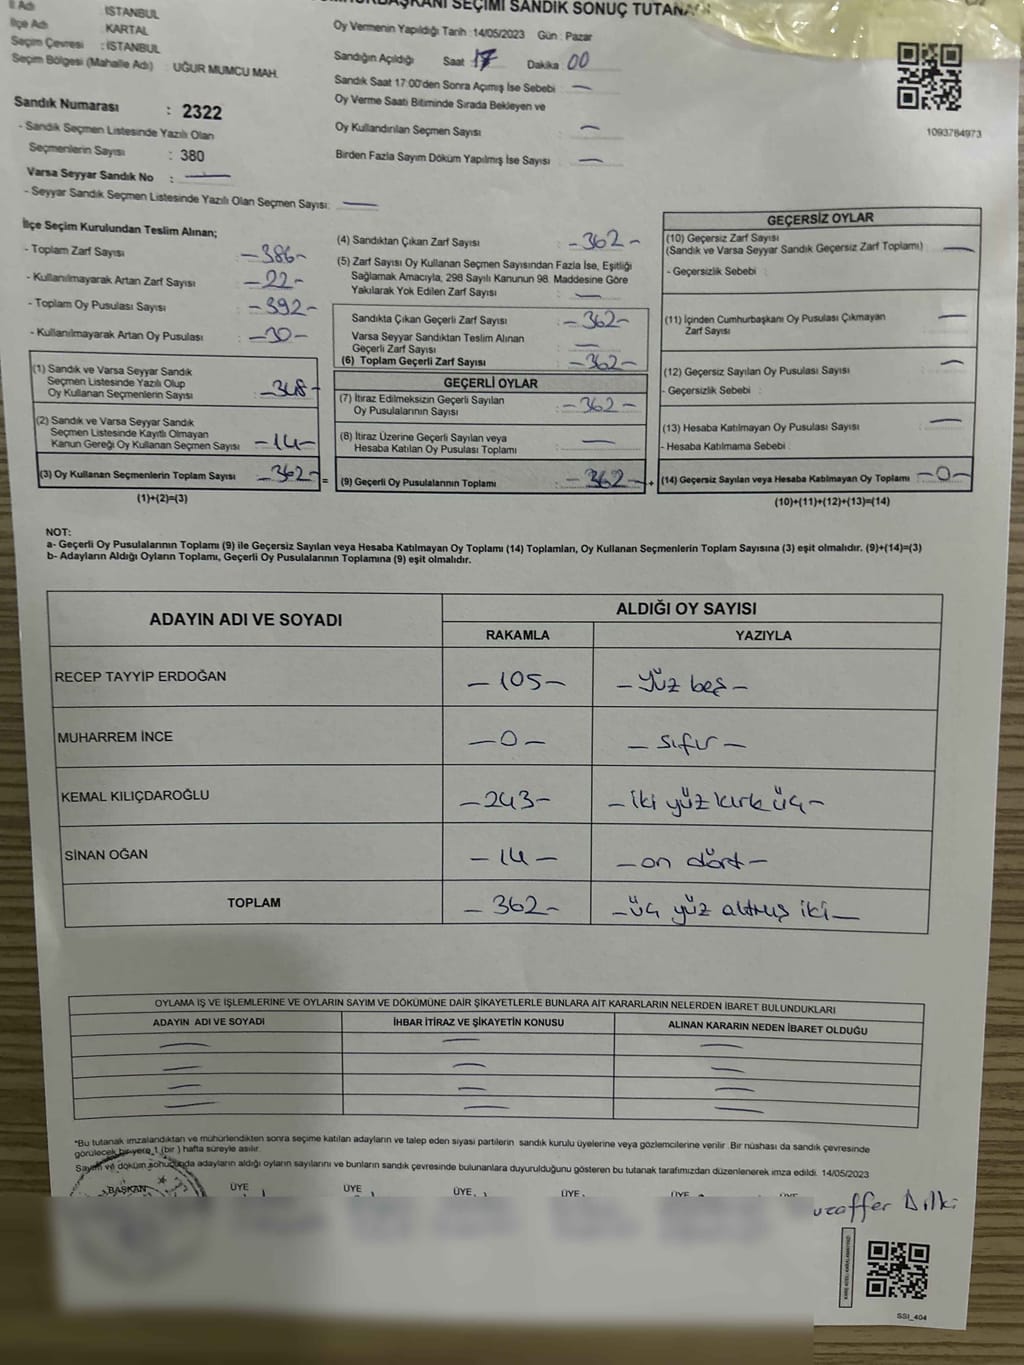 İl Adı : İSTANBUL
İlçe Adı : KARTAL
Seçim Çevresi : İSTANBUL
Seçim Bölgesi (Mahalle Adı) : UĞUR MUMCU MAH.
SEÇİMİ SANDIK SONUÇ
Oy Vermenin Yapıldığı Tarih :14/05/2023 Gün : Pazar
Sandığın Açıldığı Saat 17 Dakika 00
Sandık Saat 17:00'den Sonra Açımış İse Sebebi : —
Oy Verme Saati Bitiminde Sırada Bekleyen ve
Oy Kullandırılan Seçmen Sayısı : —
Birden Fazla Sayım Döküm Yapılmış İse Sayısı : —
1093784973
Sandık Numarası : 2322
- Sandık Seçmen Listesinde Yazılı Olan
Seçmenlerin Sayısı : 380
Varsa Seyyar Sandık No : —
- Seyyar Sandık Seçmen Listesinde Yazılı Olan Seçmen Sayısı: —
İlçe Seçim Kurulundan Teslim Alınan;
- Toplam Zarf Sayısı : -386-
- Kullanılmayarak Artan Zarf Sayısı : -22-
- Toplam Oy Pusulası Sayısı : -392-
- Kullanılmayarak Artan Oy Pusulası : -30-
(1) Sandık ve Varsa Seyyar Sandık
Seçmen Listesinde Yazılı Olup
Oy Kullanan Seçmenlerin Sayısı : -348-
(2) Sandık ve Varsa Seyyar Sandık
Seçmen Listesinde Kayıtlı Olmayan
Kanun Gereği Oy Kullanan Seçmen Sayısı : -14-
(3) Oy Kullanan Seçmenlerin Toplam Sayısı : -362- =
(1)+(2)=(3)
(4) Sandıktan Çıkan Zarf Sayısı : -362-
(5) Zarf Sayısı Oy Kullanan Seçmen Sayısından Fazla İse, Eşitliği
Sağlamak Amacıyla, 298 Sayılı Kanunun 98. Maddesine Göre
Yakılarak Yok Edilen Zarf Sayısı : —
Sandıkta Çıkan Geçerli Zarf Sayısı : -362-
Varsa Seyyar Sandıktan Teslim Alınan
Geçerli Zarf Sayısı : —
(6) Toplam Geçerli Zarf Sayısı : -362-
GEÇERLİ OYLAR
(7) İtiraz Edilmeksizin Geçerli Sayılan
Oy Pusulalarının Sayısı : -362-
(8) İtiraz Üzerine Geçerli Sayılan veya
Hesaba Katılan Oy Pusulası Toplamı : —
(9) Geçerli Oy Pusulalarının Toplamı : -362- +
GEÇERSİZ OYLAR
(10) Geçersiz Zarf Sayısı
(Sandık ve Varsa Seyyar Sandık Geçersiz Zarf Toplamı) : —
- Geçersizlik Sebebi :
(11) İçinden Cumhurbaşkanı Oy Pusulası Çıkmayan
Zarf Sayısı : —
(12) Geçersiz Sayılan Oy Pusulası Sayısı : —
- Geçersizlik Sebebi :
(13) Hesaba Katılmayan Oy Pusulası Sayısı : —
- Hesaba Katılmama Sebebi :
(14) Geçersiz Sayılan veya Hesaba Katılmayan Oy Toplamı : -0-
(10)+(11)+(12)+(13)=(14)
NOT:
a- Geçerli Oy Pusulalarının Toplamı (9) ile Geçersiz Sayılan veya Hesaba Katılmayan Oy Toplamı (14) Toplamları, Oy Kullanan Seçmenlerin Toplam Sayısına (3) eşit olmalıdır. (9)+(14)=(3)
b- Adayların Aldığı Oyların Toplamı, Geçerli Oy Pusulalarının Toplamına (9) eşit olmalıdır.
ADAYIN ADI VE SOYADI ALDIĞI OY SAYISI
RAKAMLA YAZIYLA
RECEP TAYYİP ERDOĞAN -105- -Yüz beş-
MUHARREM İNCE -0- -sıfır-
KEMAL KILIÇDAROĞLU -243- -iki yüz kırk üç-
SİNAN OĞAN -14- -on dört-
TOPLAM -362- -üç yüz altmış iki-
OYLAMA İŞ VE İŞLEMLERİNE VE OYLARIN SAYIM VE DÖKÜMÜNE DAİR ŞİKAYETLERLE BUNLARA AİT KARARLARIN NELERDEN İBARET BULUNDUKLARI
ADAYIN ADI VE SOYADI İHBAR İTİRAZ VE ŞİKAYETİN KONUSU ALINAN KARARIN NEDEN İBARET OLDUĞU
— — —
— — —
— — —
— — —
*Bu tutanak imzalandıktan ve mühürlendikten sonra seçime katılan adayların ve talep eden siyasi partilerin sandık kurulu üyelerine veya gözlemcilerine verilir. Bir nüshası da sandık çevresinde
görülecek bir yere 1 (bir) hafta süreyle asılır.
Sayım ve döküm sonucunda adayların aldığı oyların sayılarını ve bunların sandık çevresinde bulunanlara duyurulduğunu gösteren bu tutanak tarafımızdan düzenlenerek imza edildi. 14/05/2023
BAŞKAN ÜYE ÜYE ÜYE ÜYE ÜYE
Dilki
SSI_404